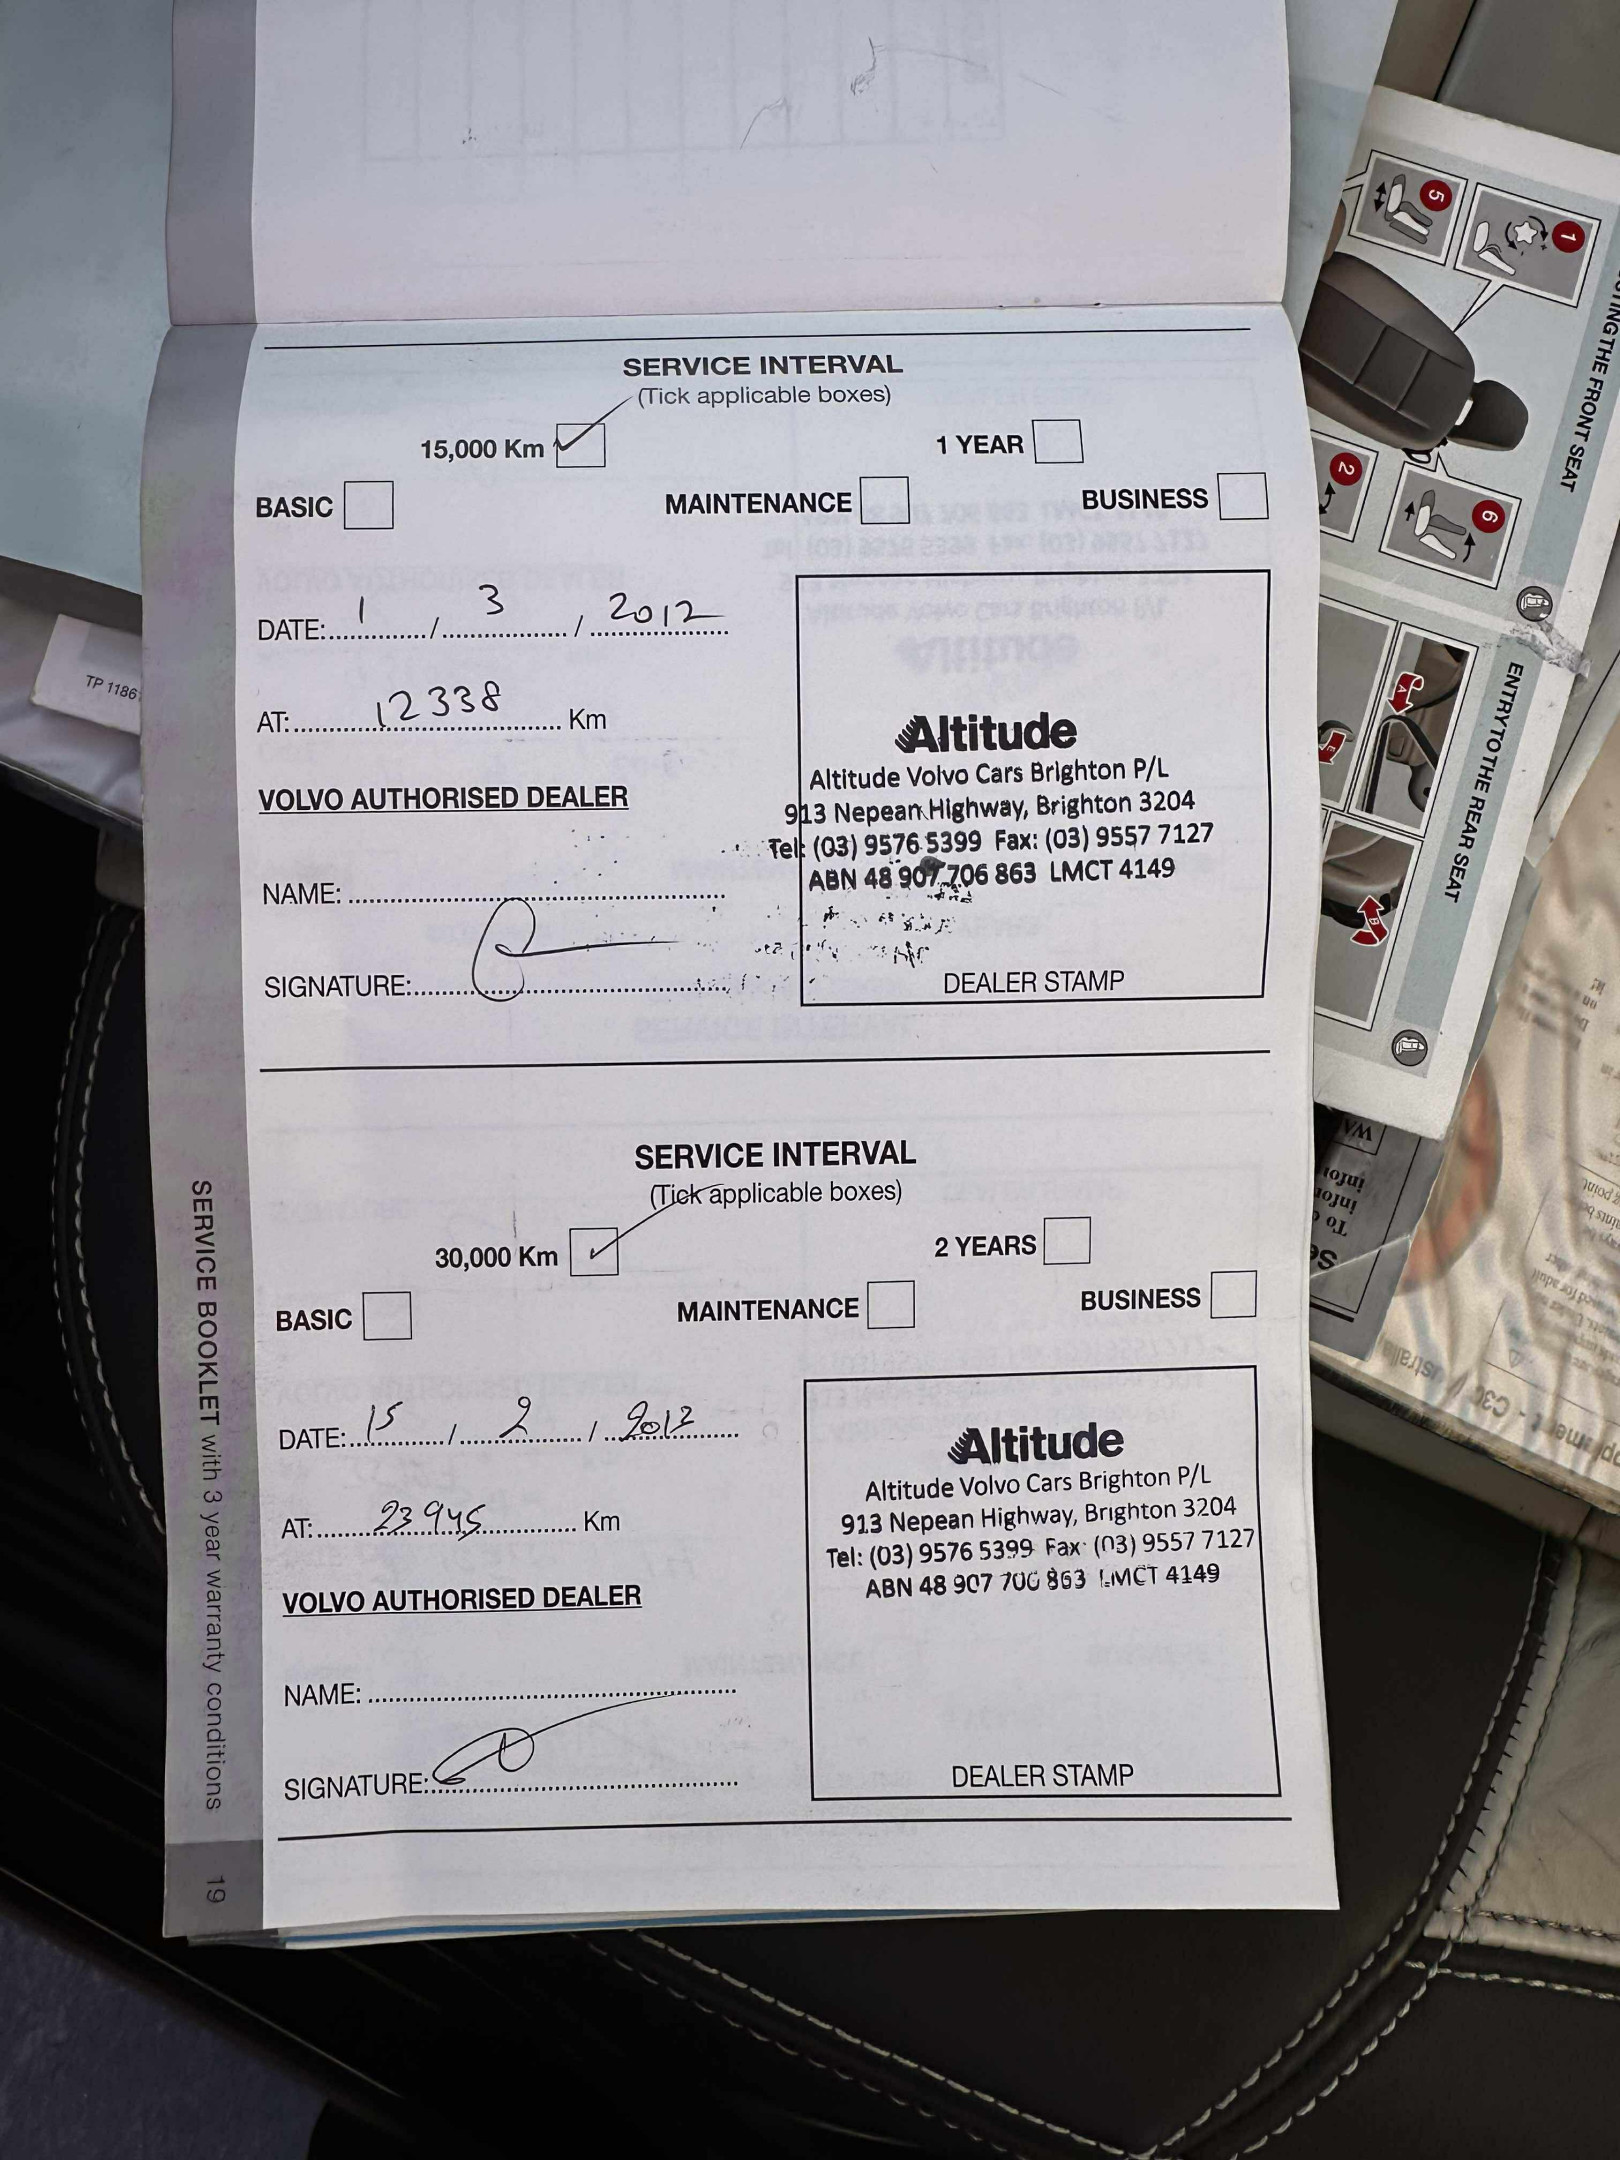 SERVICE INTERVAL
(Tick applicable boxes)
15,000 Km
1 YEAR
BASIC
MAINTENANCE
BUSINESS
DATE: 1 / 3 / 2012
AT: 12338 Km
VOLVO AUTHORISED DEALER
NAME:
SIGNATURE:
Altitude
Altitude Volvo Cars Brighton P/L
913 Nepean Highway, Brighton 3204
Tel: (03) 9576 5399 Fax: (03) 9557 7127
ABN 48 907 706 863 LMCT 4149
DEALER STAMP
SERVICE INTERVAL
(Tick applicable boxes)
30,000 Km
2 YEARS
BASIC
MAINTENANCE
BUSINESS
DATE: 15 / 2 / 2013
AT: 23945 Km
VOLVO AUTHORISED DEALER
NAME:
SIGNATURE:
Altitude
Altitude Volvo Cars Brighton P/L
913 Nepean Highway, Brighton 3204
Tel: (03) 9576 5399 Fax: (03) 9557 7127
ABN 48 907 706 863 LMCT 4149
DEALER STAMP
SERVICE BOOKLET with 3 year warranty conditions
19
TP 1186
THE FRONT SEAT
1
5
2
6
ENTRY TO THE REAR SEAT
A
E
B